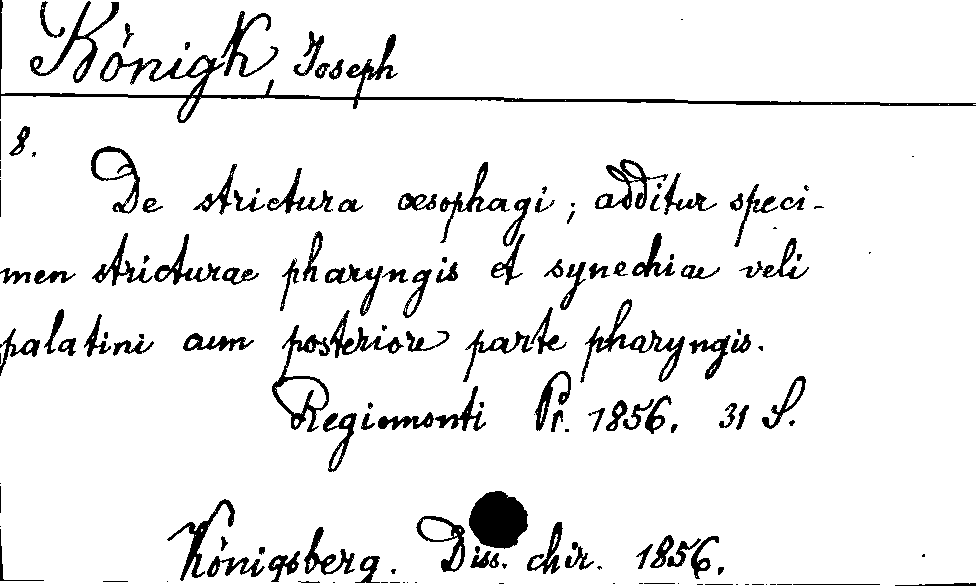 Königk, Joseph
8.
De strictura œsophagi; additur speci-
men stricturae pharyngis et synechiae veli
palatini cum posteriore parte pharyngis.
Regiomonti Pr. 1856. 31 S.
Königsberg. Diss. chir. 1856.